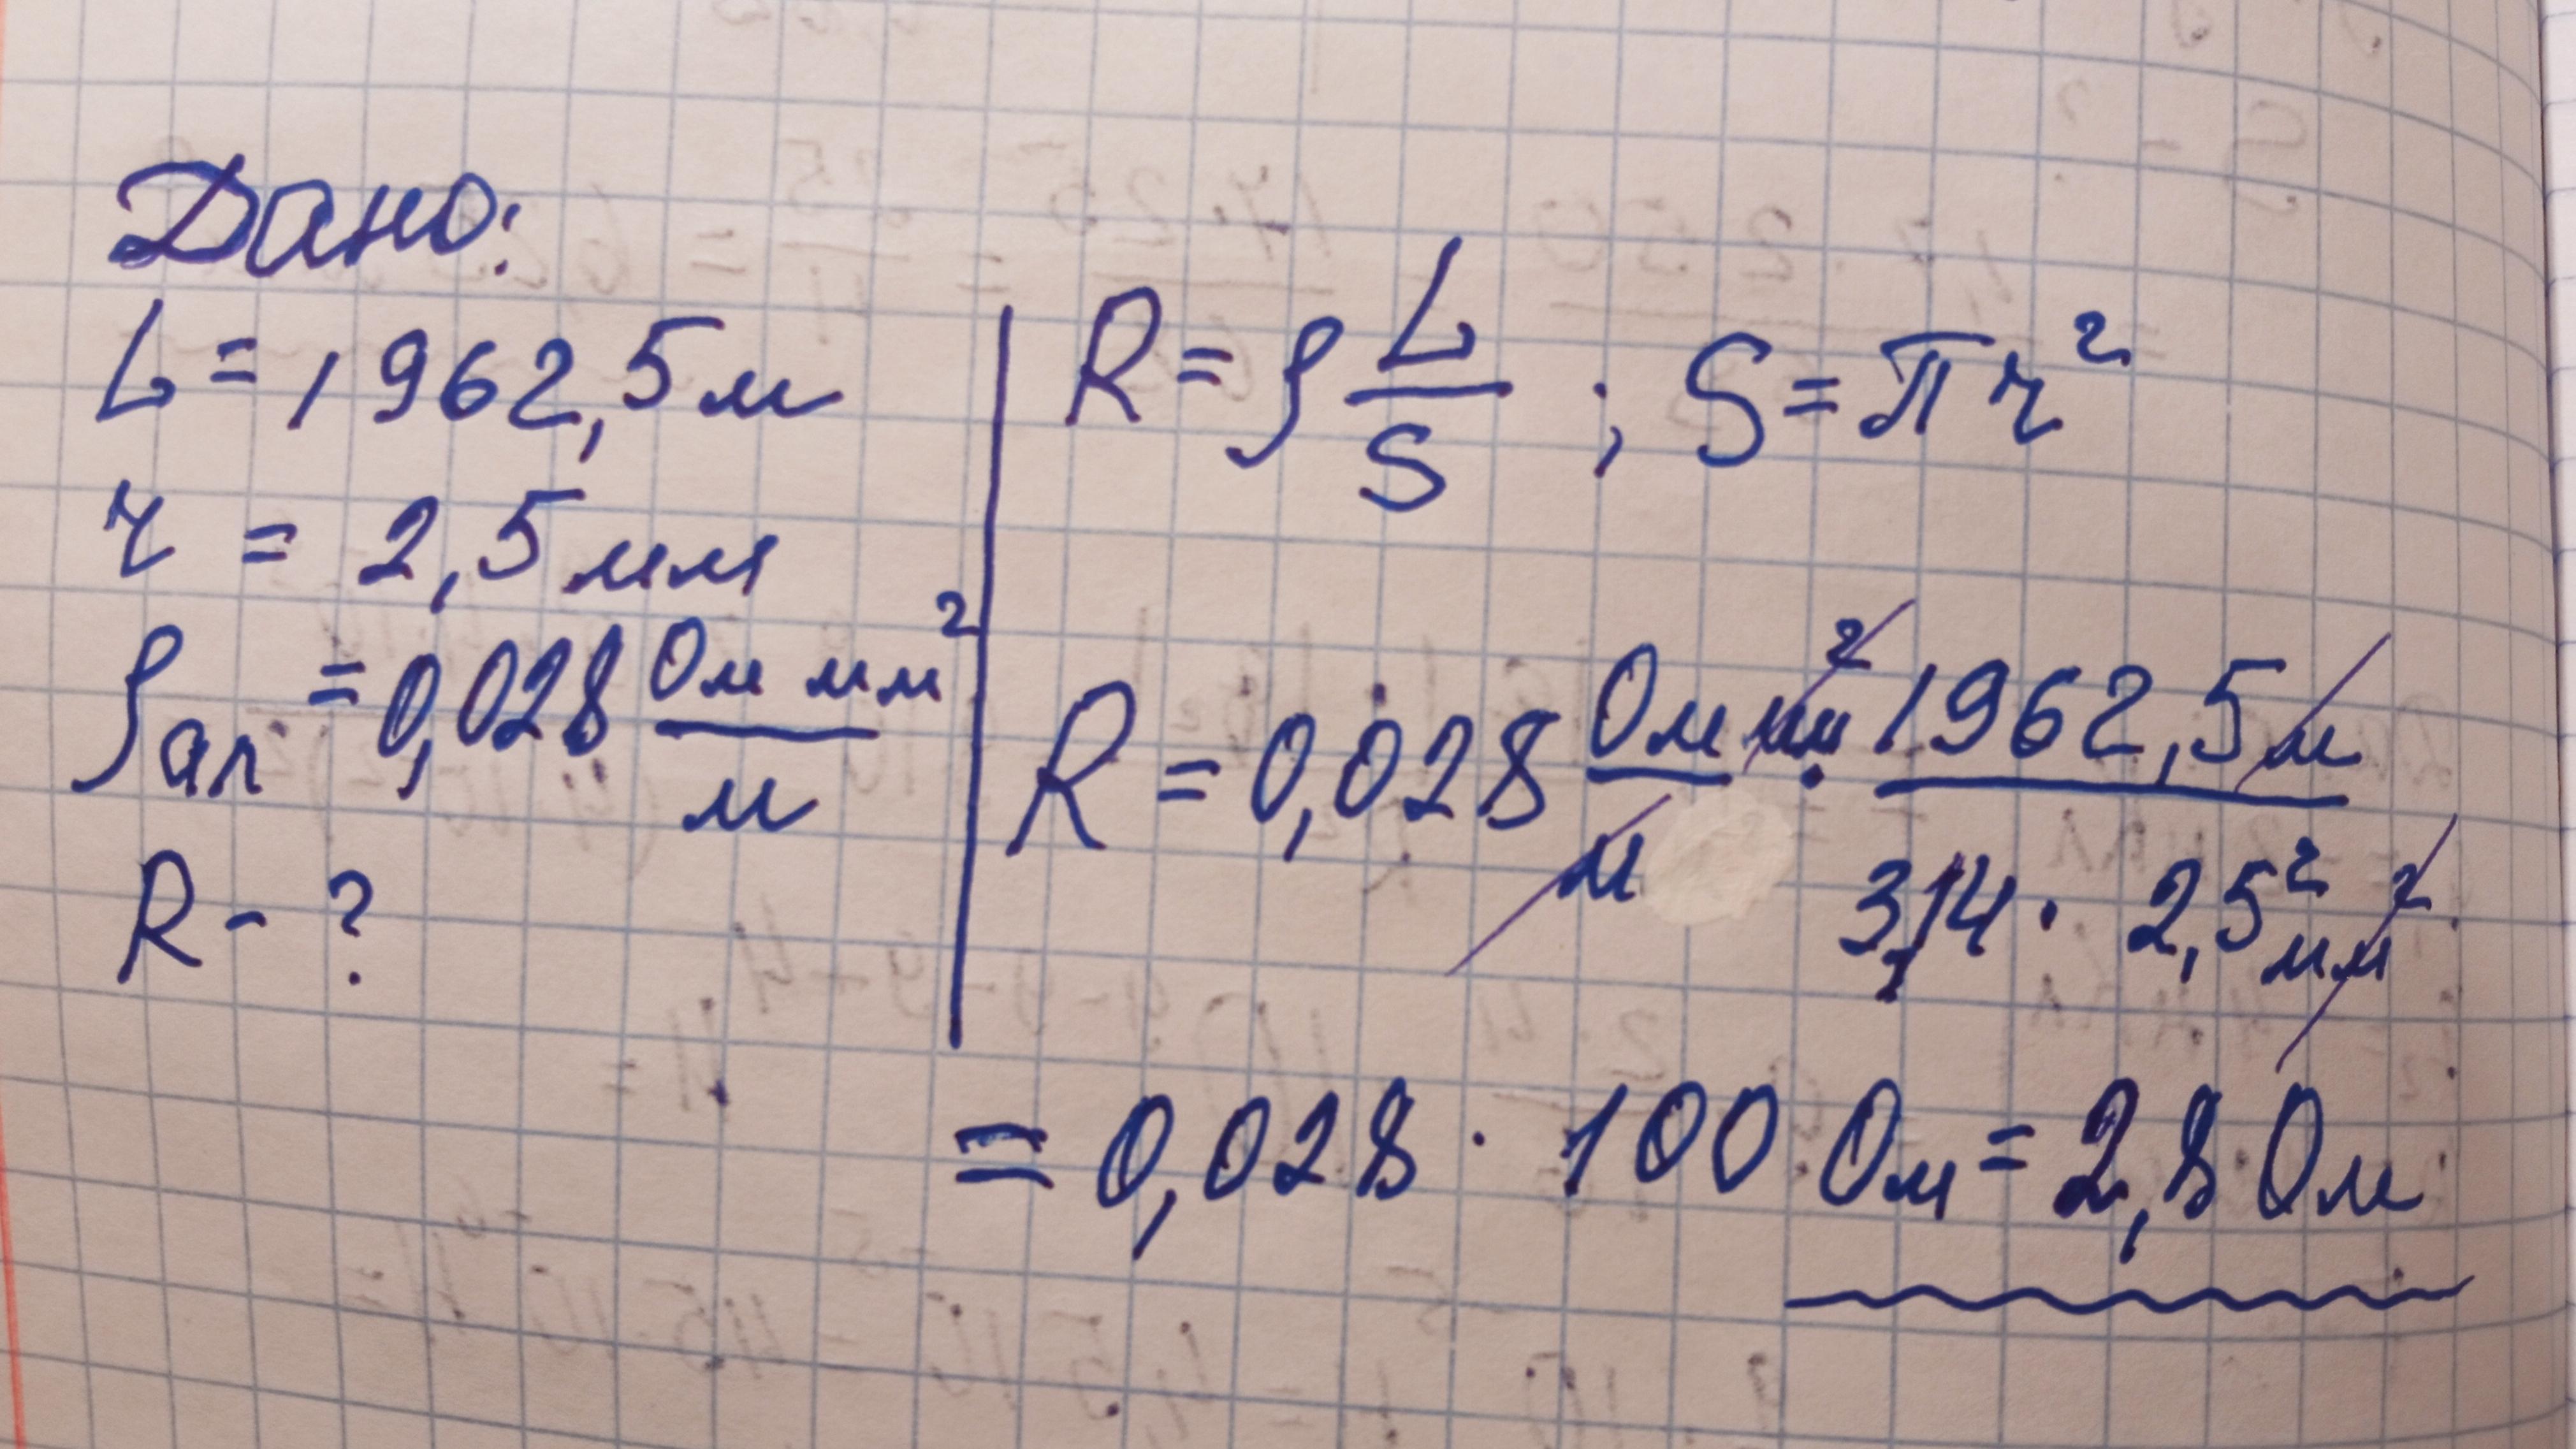 Дано:
L = 1962,5 м
r = 2,5 мм
ρал = 0,028 Ом мм²/м
R - ?
R = ρ L/S ; S = πr²
R = 0,028 Ом мм²/м · 1962,5 м/3,14 · 2,5² мм²
= 0,028 · 100 Ом = 2,8 Ом